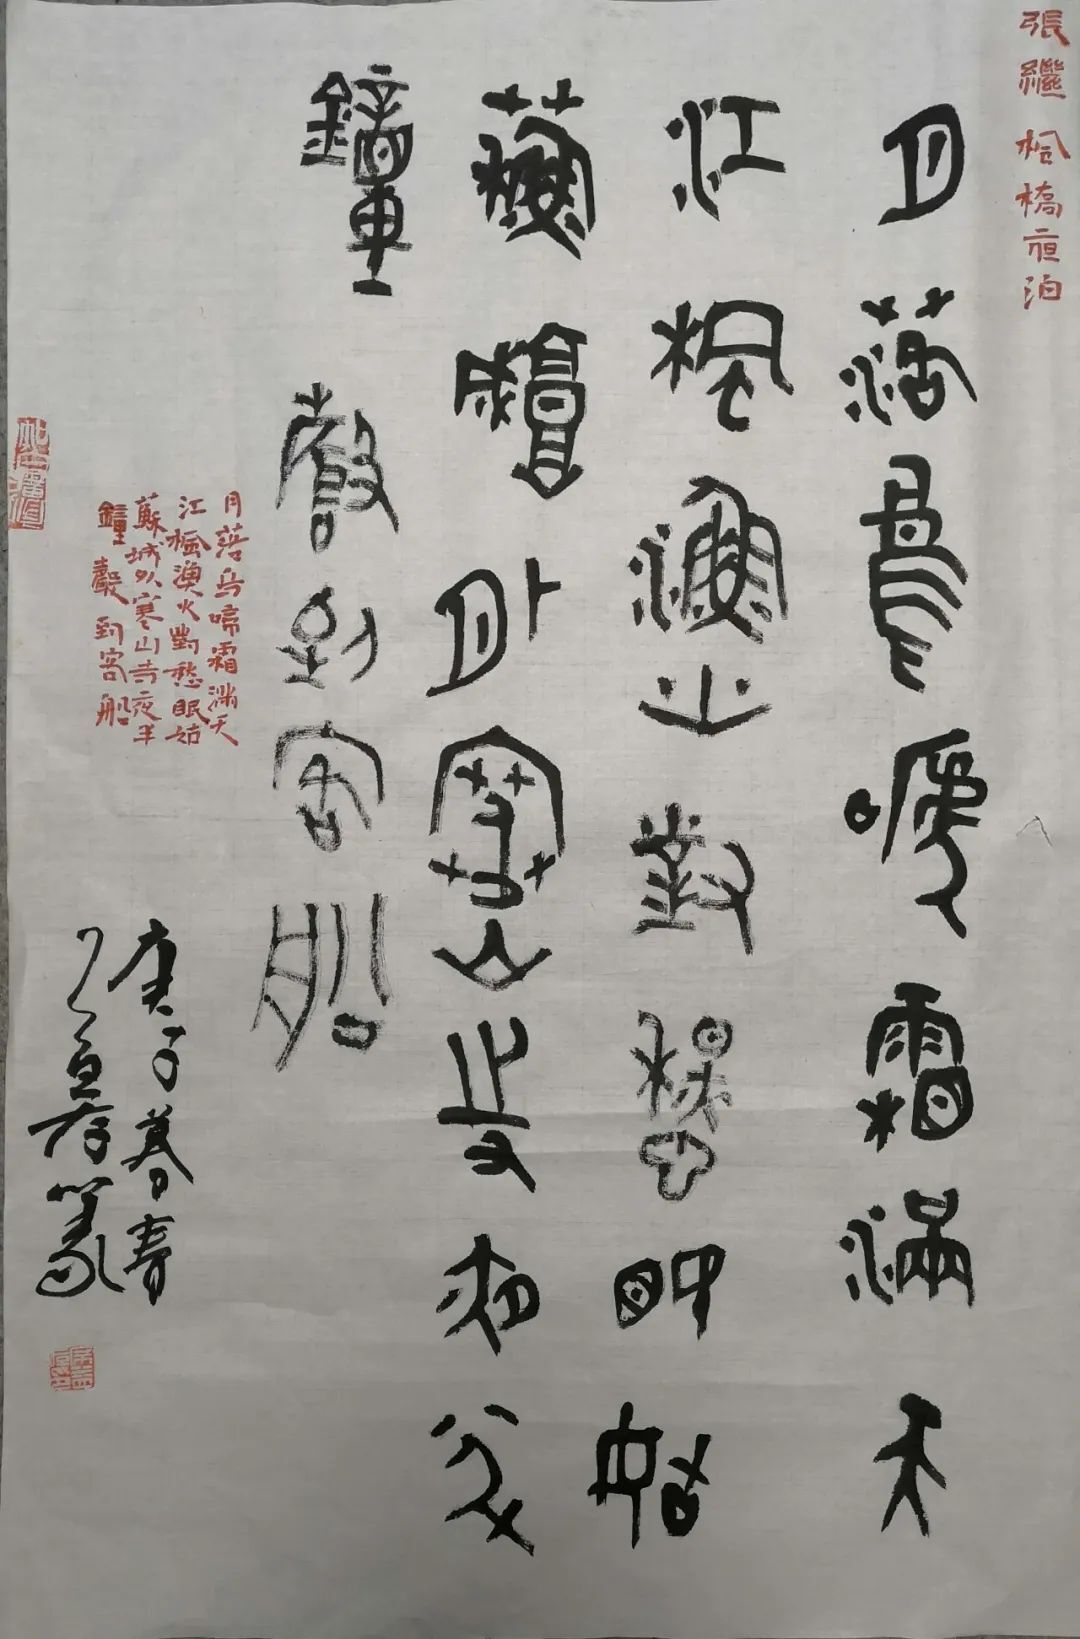 張繼 楓橋夜泊
月落烏啼霜滿天
江楓漁火對愁眠姑
蘇城外寒山寺夜半
鐘聲到客船
月落烏啼霜滿天
江楓漁火對愁眠姑
蘇城外寒山寺夜半
鐘聲到客船
庚子暮春
篆